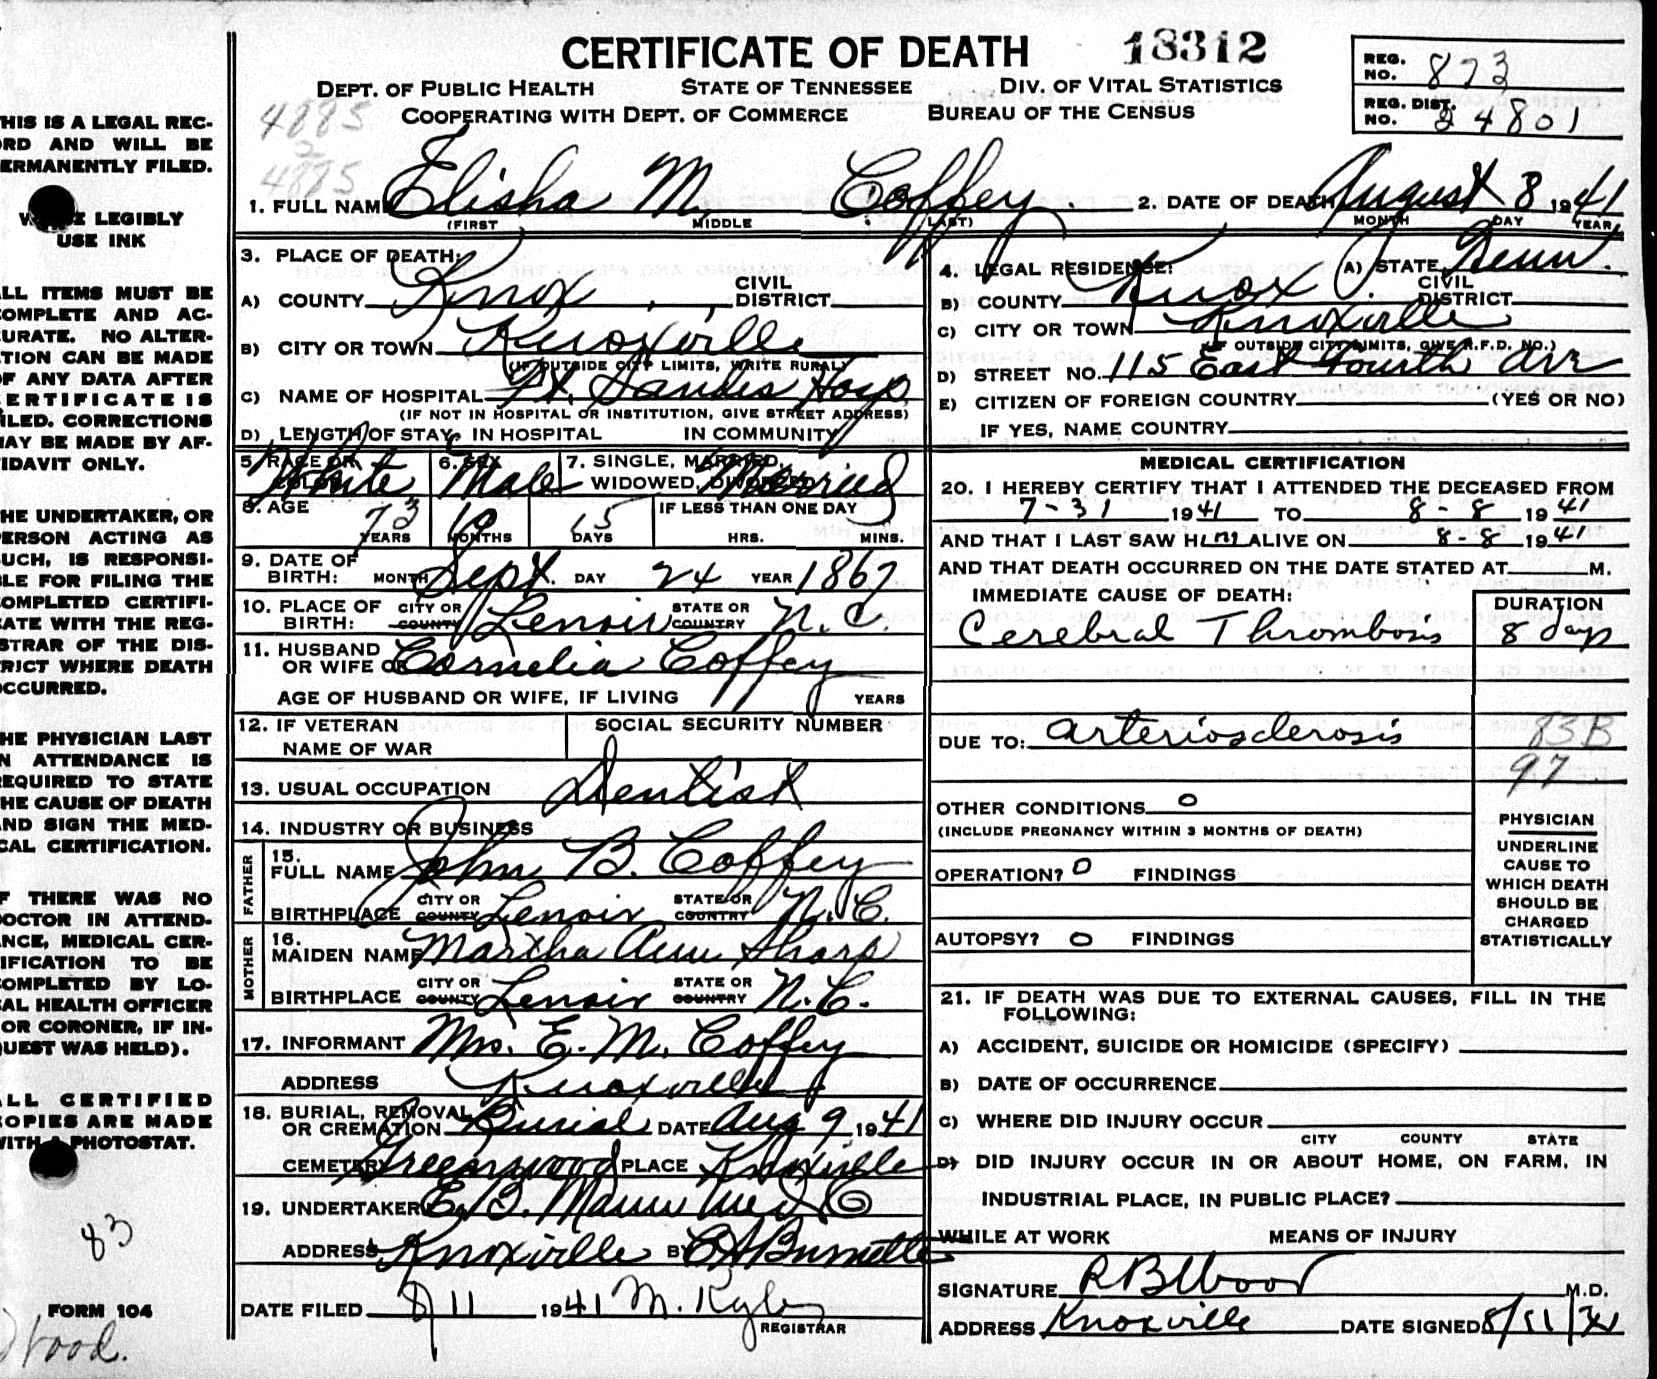 CERTIFICATE OF DEATH 18312
DEPT. OF PUBLIC HEALTH STATE OF TENNESSEE DIV. OF VITAL STATISTICS
COOPERATING WITH DEPT. OF COMMERCE BUREAU OF THE CENSUS
REG. NO. 873
REG. DIST. NO. 24801
4885
2
4885
1. FULL NAME Elisha M. Coffey. 2. DATE OF DEATH August 8 1941
(FIRST MIDDLE (LAST) MONTH DAY YEAR
HIS IS A LEGAL REC-
RD AND WILL BE
ERMANENTLY FILED.
LEGIBLY
USE INK
LL ITEMS MUST BE
OMPLETE AND AC-
URATE. NO ALTER-
TION CAN BE MADE
F ANY DATA AFTER
ERTIFICATE IS
ILED. CORRECTIONS
AY BE MADE BY AF-
IDAVIT ONLY.
HE UNDERTAKER, OR
ERSON ACTING AS
UCH, IS RESPONSI-
LE FOR FILING THE
OMPLETED CERTIFI-
ATE WITH THE REG-
STRAR OF THE DIS-
RICT WHERE DEATH
CCURRED.
HE PHYSICIAN LAST
N ATTENDANCE IS
EQUIRED TO STATE
HE CAUSE OF DEATH
ND SIGN THE MED-
CAL CERTIFICATION.
F THERE WAS NO
OCTOR IN ATTEND-
NCE, MEDICAL CER-
IFICATION TO BE
OMPLETED BY LO-
AL HEALTH OFFICER
OR CORONER, IF IN-
QUEST WAS HELD).
LL CERTIFIED
OPIES ARE MADE
WITH A PHOTOSTAT.
83
FORM 104
Wood.
3. PLACE OF DEATH:
A) COUNTY Knox CIVIL DISTRICT
B) CITY OR TOWN Knoxville
(IF OUTSIDE CITY LIMITS, WRITE RURAL)
C) NAME OF HOSPITAL Ft. Sanders Hosp
(IF NOT IN HOSPITAL OR INSTITUTION, GIVE STREET ADDRESS)
D) LENGTH OF STAY IN HOSPITAL IN COMMUNITY
4. LEGAL RESIDENCE: A) STATE Tenn.
B) COUNTY Knox CIVIL DISTRICT
C) CITY OR TOWN Knoxville
(IF OUTSIDE CITY LIMITS, GIVE R.F.D. NO.)
D) STREET NO. 115 East Fourth Ave
E) CITIZEN OF FOREIGN COUNTRY (YES OR NO)
IF YES, NAME COUNTRY
5. RACE OR COLOR White 6. SEX Male 7. SINGLE, MARRIED, WIDOWED, DIVORCED Married
8. AGE 73 YEARS 10 MONTHS 15 DAYS IF LESS THAN ONE DAY HRS. MINS.
9. DATE OF BIRTH: MONTH Sept. DAY 24 YEAR 1867
10. PLACE OF BIRTH: CITY OR COUNTY Lenoir STATE OR COUNTRY N.C.
11. HUSBAND OR WIFE OF Cornelia Coffey
AGE OF HUSBAND OR WIFE, IF LIVING YEARS
12. IF VETERAN NAME OF WAR SOCIAL SECURITY NUMBER
13. USUAL OCCUPATION Dentist
14. INDUSTRY OR BUSINESS
FATHER
15. FULL NAME John B. Coffey
BIRTHPLACE CITY OR COUNTY Lenoir STATE OR COUNTRY N.C.
MOTHER
16. MAIDEN NAME Martha Ann Sharp
BIRTHPLACE CITY OR COUNTY Lenoir STATE OR COUNTRY N.C.
17. INFORMANT Mrs. E. M. Coffey
ADDRESS Knoxville
18. BURIAL, REMOVAL OR CREMATION Burial DATE Aug 9 1941
CEMETERY Greenwood PLACE Knoxville
19. UNDERTAKER E. B. Mann Und. Co
ADDRESS Knoxville BY Burnette
DATE FILED 8 11 1941 M. Kyle
REGISTRAR
MEDICAL CERTIFICATION
20. I HEREBY CERTIFY THAT I ATTENDED THE DECEASED FROM
7-31 1941 TO 8-8 1941
AND THAT I LAST SAW Him ALIVE ON 8-8 1941
AND THAT DEATH OCCURRED ON THE DATE STATED AT M.
IMMEDIATE CAUSE OF DEATH: DURATION
Cerebral Thrombosis 8 days
DUE TO: Arteriosclerosis 83B
97
OTHER CONDITIONS 0
(INCLUDE PREGNANCY WITHIN 3 MONTHS OF DEATH)
OPERATION? 0 FINDINGS
AUTOPSY? 0 FINDINGS
PHYSICIAN
UNDERLINE
CAUSE TO
WHICH DEATH
SHOULD BE
CHARGED
STATISTICALLY
21. IF DEATH WAS DUE TO EXTERNAL CAUSES, FILL IN THE
FOLLOWING:
A) ACCIDENT, SUICIDE OR HOMICIDE (SPECIFY)
B) DATE OF OCCURRENCE
C) WHERE DID INJURY OCCUR
CITY COUNTY STATE
D) DID INJURY OCCUR IN OR ABOUT HOME, ON FARM, IN
INDUSTRIAL PLACE, IN PUBLIC PLACE?
WHILE AT WORK MEANS OF INJURY
SIGNATURE R B Wood M.D.
ADDRESS Knoxville DATE SIGNED 8/11/41